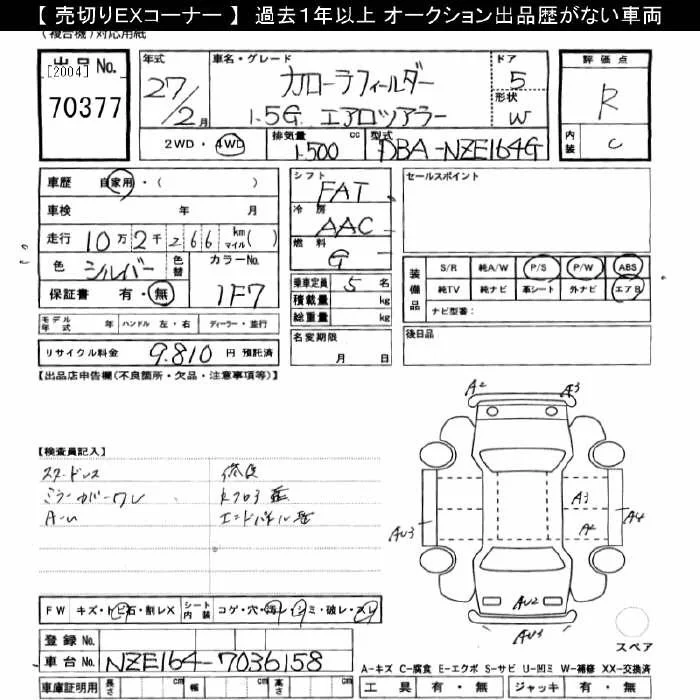 【 売切りEXコーナー 】 過去１年以上 オークション出品歴がない車両
(複合機)対応用紙
出品No.
[2004]
70377
年式
27/2月
車名・グレード
カローラフィールダー
1.5G エアロツアラー
ドア
5
形状
W
評価点
R
内装
C
2WD・4WD
排気量
1500 cc
型式
DBA-NZE164G
車歴 自家用・( )
車検 年 月
走行 10万2千266 km マイル( )
色 シルバー 色替
カラーNo.
1F7
保証書 有・無
シフト
FAT
冷房
AAC
燃料
G
乗車定員 5 名
積載量 kg
総重量 kg
名変期限
月 日
セールスポイント
装備品
S/R 純A/W P/S P/W ABS
純TV 純ナビ 革シート 外ナビ エアB
ナビ型番:
後日品
モデル年式 年 ハンドル 左・右 ディーラー・並行
リサイクル料金 9.810 円 預託済
【出品店申告欄(不良箇所・欠品・注意事項等)】
【検査員記入】
スタードレス
ミラーカバーワレ
修復
エンドパネル
A2
A3
A3
A2
AU3
A4
AU2
AU3
スペア
FW キズ・トビ石・割レX
シート内装 コゲ・穴・汚レ・シミ・破レ・スレ
登録No.
車台No. NZE164-7036158
車庫証明用 長さ cm 幅 cm 高さ cm
A-キズ C-腐食 E-エクボ S-サビ U-凹ミ W-補修 XX-交換済
工具 有・無 ジャッキ 有・無